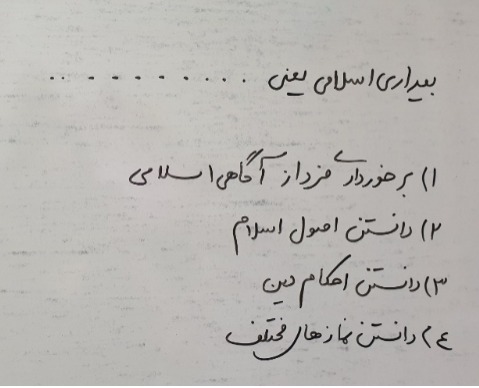 بیداری اسلامی یعنی ..........
۱) برخورداری فرد از آگاهی اسلامی
۲) دانستن اصول اسلام
۳) دانستن احکام دین
۴) دانستن نمازهای مختلف